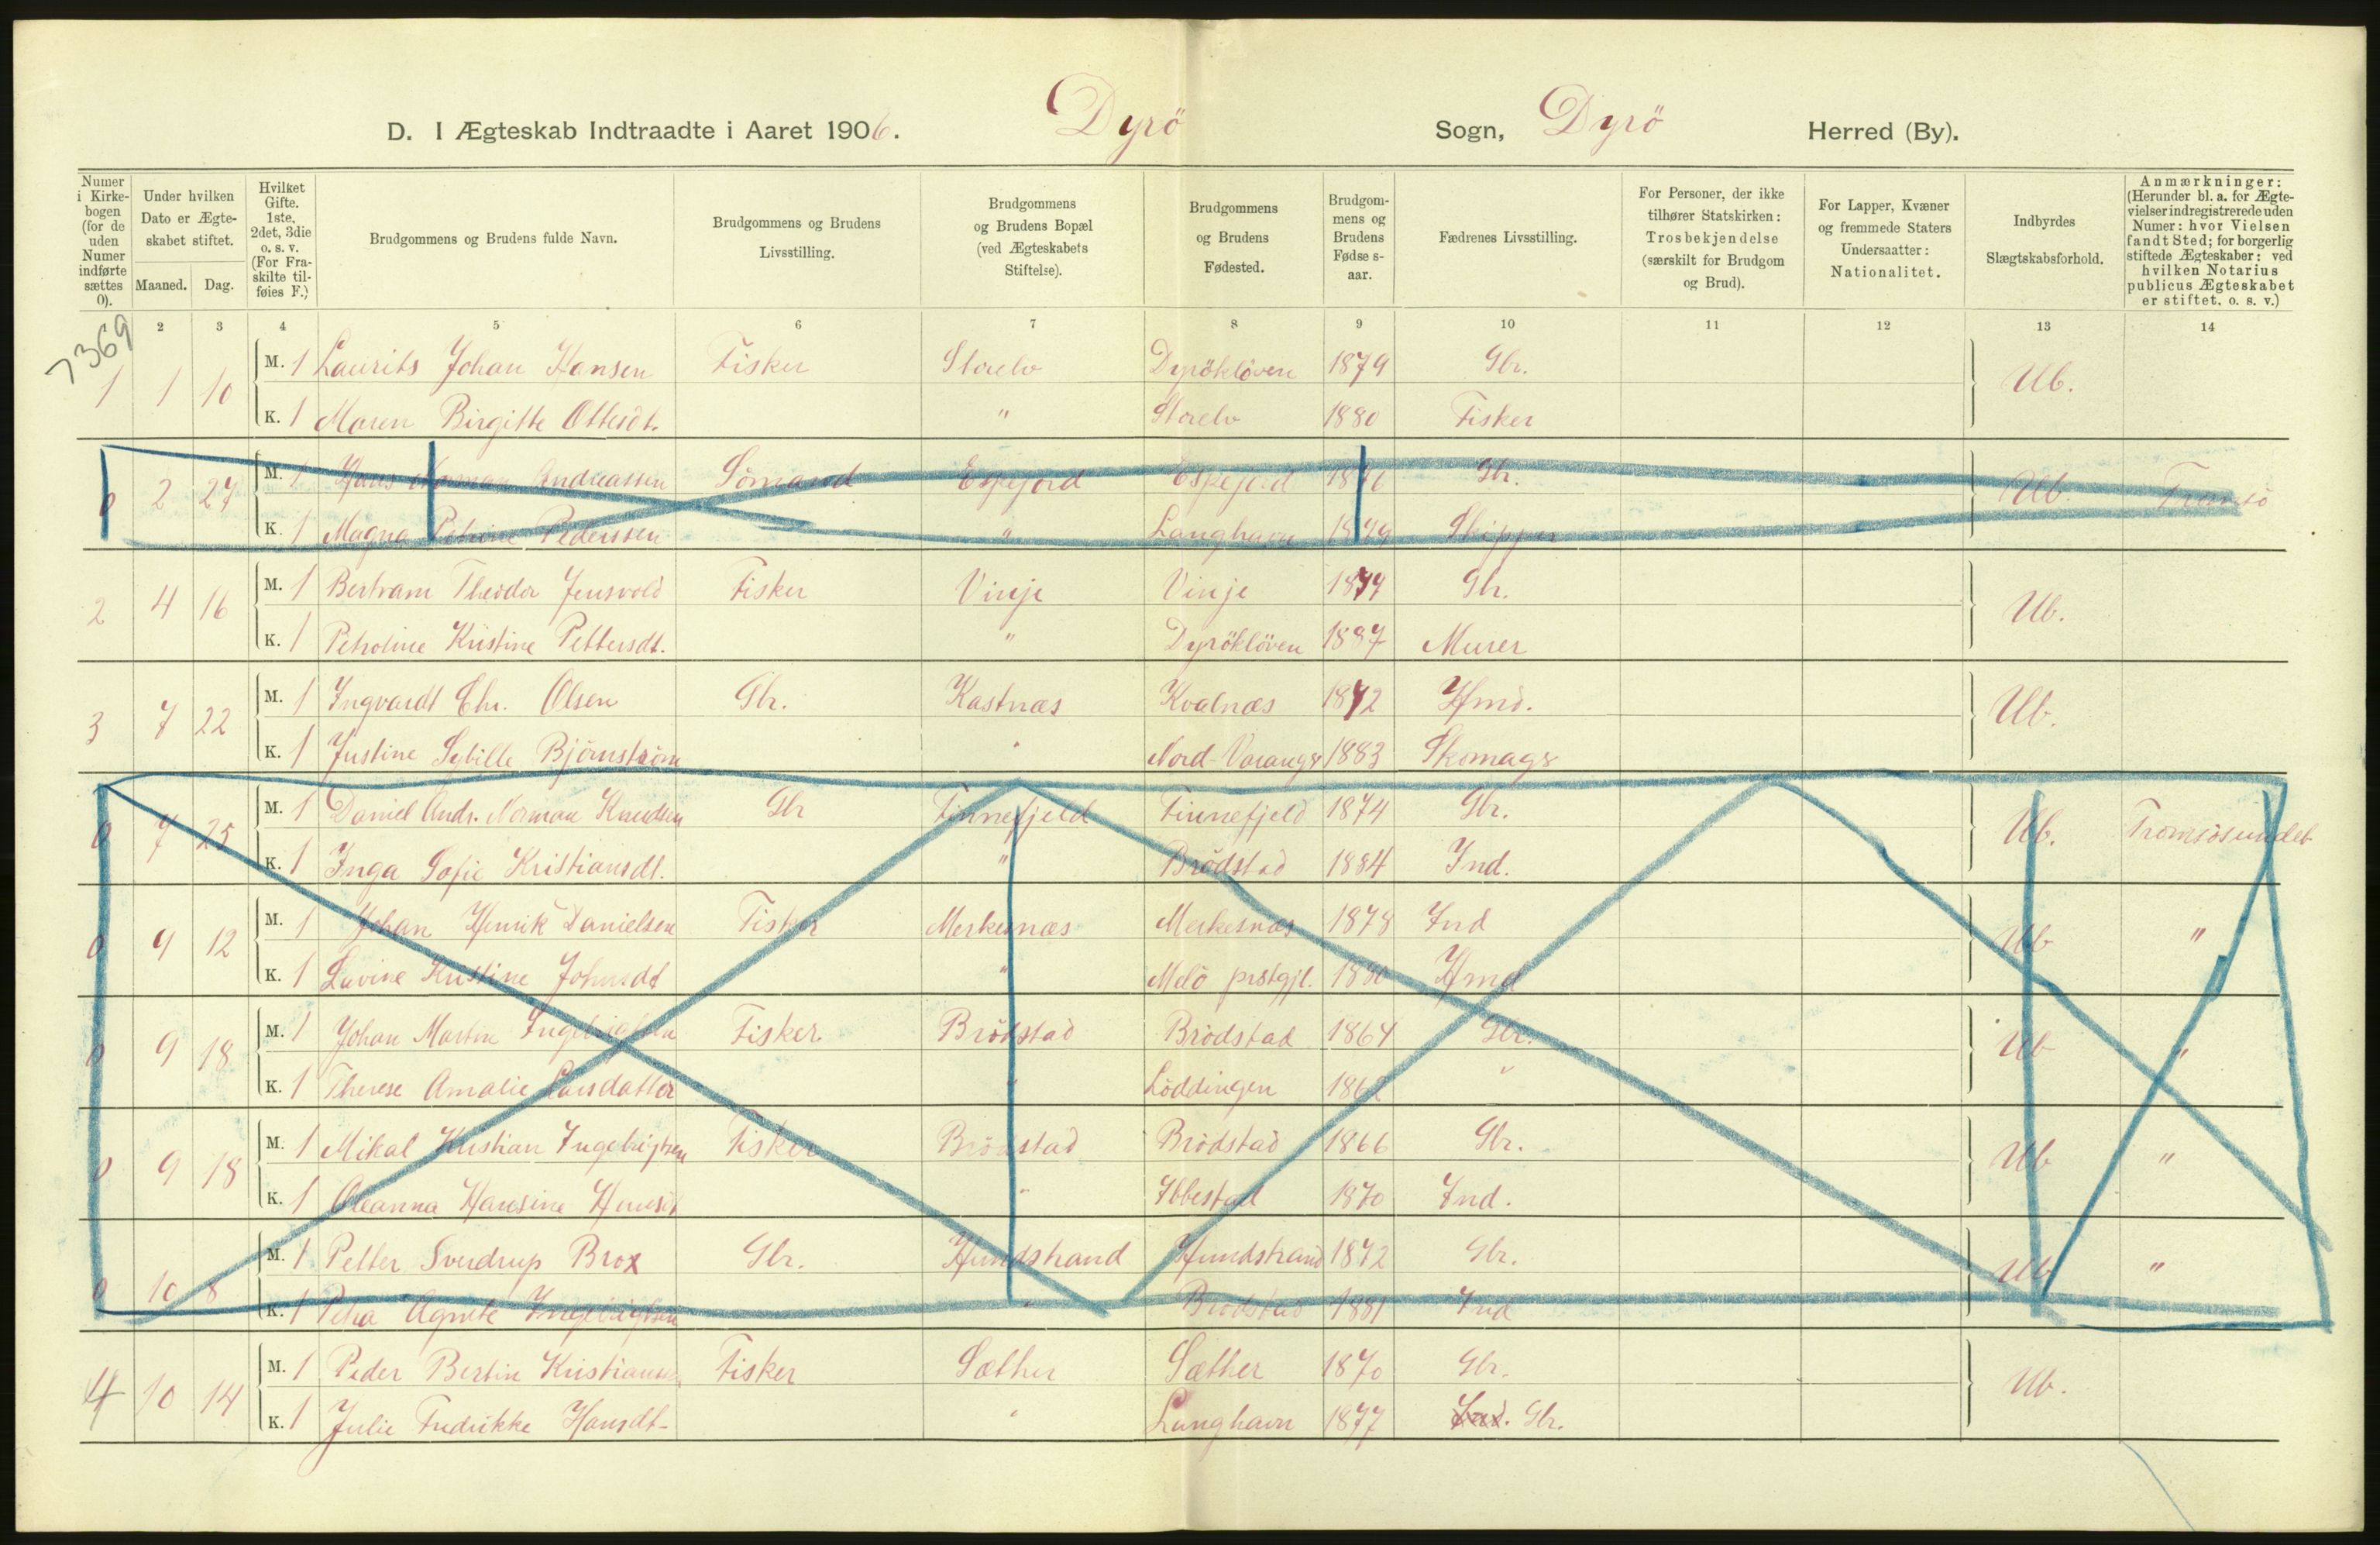 D. I Ægteskab Indtraadte i Aaret 1906. Dyrö Sogn, Dyrö Herred (By).
Numer i Kirkebogen (for de uden Numer indførte sættes 0).
Under hvilken Dato er Ægteskabet stiftet.
Maaned. Dag.
Hvilket Gifte. 1ste, 2det, 3die o. s. v. (For Fraskilte tilføies F.)
Brudgommens og Brudens fulde Navn.
Brudgommens og Brudens Livsstilling.
Brudgommens og Brudens Bopæl (ved Ægteskabets Stiftelse).
Brudgommens og Brudens Fødested.
Brudgommens og Brudens Fødse s-aar.
Fædrenes Livsstilling.
For Personer, der ikke tilhører Statskirken: Trosbekjendelse (særskilt for Brudgom og Brud).
For Lapper, Kvæner og fremmede Staters Undersaatter: Nationalitet.
Indbyrdes Slægtskabsforhold.
Anmærkninger: (Herunder bl. a. for Ægtevielser indregistrerede uden Numer: hvor Vielsen fandt Sted; for borgerlig stiftede Ægteskaber: ved hvilken Notarius publicus Ægteskabet er stiftet, o. s. v.)
2 3 4 5 6 7 8 9 10 11 12 13 14
7369
1 1 10 M. 1 Laurits Johan Hansen Fisker Storelv Dyröklöven 1879 Gbr. Ub.
K. 1 Maren Birgitte Ottersdt. " Storelv 1880 Fisker
0 2 27 M. 1 Hans Norman Andreassen Sömand Espejord Espejord 1876 Gbr. Ub. Tromsö
K. 1 Magna Petrine Pederssen " Langhavn 1879 Skipper
2 4 16 M. 1 Bertram Theodor Jensvold Fisker Vinje Vinje 1879 Gbr. Ub.
K. 1 Petroline Kristine Pettersdt. " Dyröklöven 1887 Murer
3 7 22 M. 1 Ingvardt Chr. Olsen Gbr. Kastnæs Kvalnæs 1872 Hmd. Ub.
K. 1 Justine Sybille Björnström " Nord-Varangr 1883 Skomagr
0 7 25 M. 1 Daniel Andr. Norman Knudsen Gbr Finnefjeld Finnefjeld 1874 Gbr. Ub. Tromsösundet
K. 1 Inga Sofie Kristiansdt. " Brödstad 1884 Ind.
0 9 12 M. 1 Johan Henrik Danielsen Fisker Merkesnæs Merkesnæs 1878 Ind Ub "
K. 1 Lavine Kristine Johnsdt " Melö prstgjl. 1880 Hmd
0 9 18 M. 1 Johan Martin Ingebrigtsen Fisker Brödstad Brödstad 1864 Gbr. Ub "
K. 1 Therese Amalie Larsdatter " Löddingen 1862 "
0 9 18 M. 1 Mikal Kristian Ingebrigtsen Fisker Brödstad Brödstad 1866 Gbr. Ub "
K. 1 Oleanna Hansine Hansdt " Ibbestad 1870 Ind.
0 10 8 M. 1 Petter Sverdrup Brox Gbr. Hundstrand Hundstrand 1872 Gbr. Ub "
K. 1 Petra Agnete Ingebrigtsen " Brödstad 1881 Ind
4 10 14 M. 1 Peder Bertin Kristiansen Fisker Sæther Sæther 1870 Gbr. Ub.
K. 1 Julie Fredrikke Hansdt. " Langhavn 1877 Ind. Gbr.